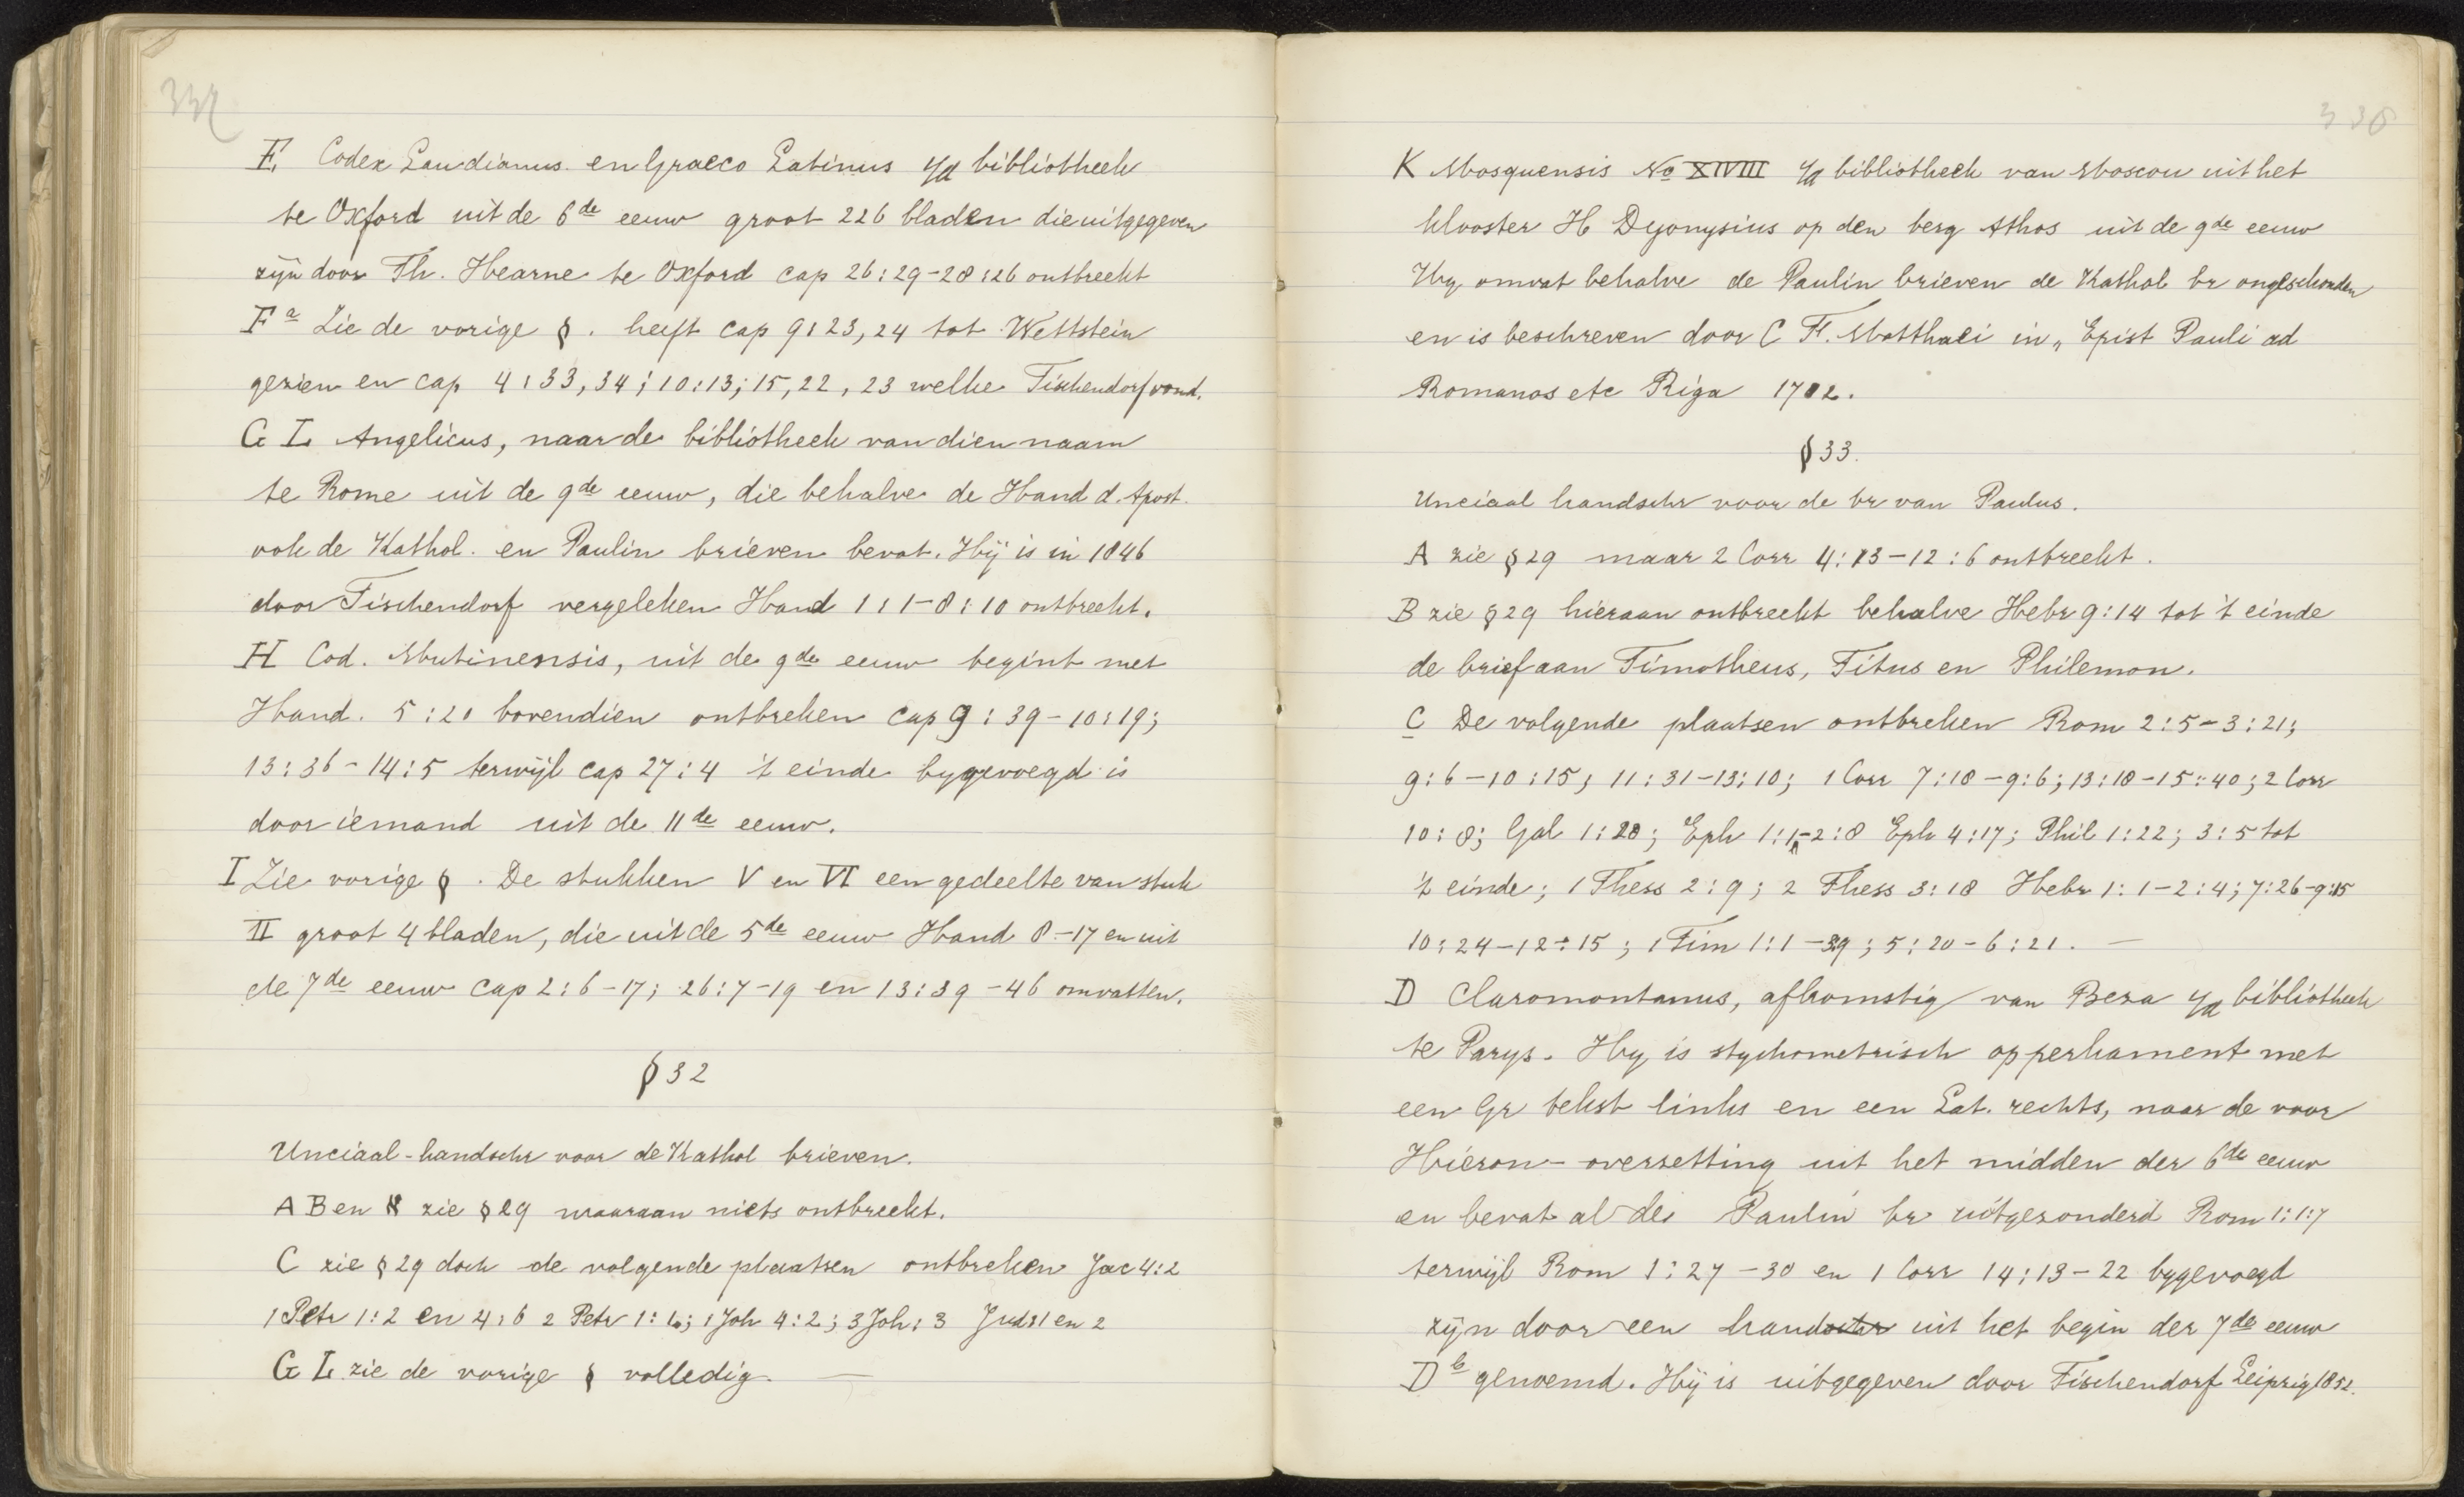 E Codex Laudianus en Graeco Latinus i/d bibliotheek
te Oxford uit de 6de eeuw groot 226 bladen die uitgegeven
zijn door Th. Hearne te Oxford cap 26:29-28:26 ontbreekt
Fa Zie de vorige §. heeft cap 9:23,24 tot Wettstein
gezien en cap 4:33,34; 10:13; 15, 22, 23 welke Tischendorf vond.
G L Angelicus, naar de bibliotheek van dien naam
te Rome uit de 9de eeuw, die behalve de Hand d. Apost.
ook de Kathol. en Paulin brieven bevat. Hij is in 1846
door Tischendorf vergeleken Hand 1:1-8:10 ontbreekt.
H Cod. Mutinensis, uit de 9de eeuw begint met
Hand. 5:20 bovendien ontbreken cap 9:39-10:19;
13:36-14:5 terwijl cap 27:4 't einde bygevoegd is
door iemand uit de 11de eeuw.
I Zie vorige §. De stukken V en VI een gedeelte van stuk
II groot 4 bladen, die uit de 5de eeuw Hand 8-17 en uit
de 7de eeuw cap 2:6-17; 26:7-19 en 13:39-46 omvatten.
§ 32
Unciaal-handschr voor de Kathol brieven.
A B en א zie § 29 waaraan niets ontbreekt.
C zie § 29 doch de volgende plaatsen ontbreken Jac 4:2
1 Petr 1:2 en 4:6 2 Petr 1:1; 1 Joh 4:2; 3 Joh:3 Jud:1 en 2
G L zie de vorige § volledig. —
338
K Mosquensis No XIVIII i/d bibliotheek van Moscou uit het
klooster H Dyonysius op den berg Athos uit de 9de eeuw
Hy omvat behalve de Paulin brieven de Kathol br ongeschonden
en is beschreven door C F. Matthaei in „Epist Pauli ad
Romanos etc Riga 1782.
§ 33.
Unciaal handschr voor de br van Paulus.
A zie § 29 maar 2 Corr 4:13-12:6 ontbreekt.
B zie § 29 hieraan ontbreekt behalve Hebr 9:14 tot 't einde
de brief aan Timotheus, Titus en Philemon.
C De volgende plaatsen ontbreken Rom 2:5-3:21;
9:6-10:15; 11:31-13:10; 1 Corr 7:18-9:6; 13:18-15:40; 2 Corr
10:8; Gal 1:20; Eph 1:1-2:8 Eph 4:17; Phil 1:22; 3:5 tot
't einde; 1 Thess 2:9; 2 Thess 3:18 Hebr 1:1-2:4; 7:26-9:15
10:24-12:15; 1 Tim 1:1-39; 5:20-6:21. —
D Claromontanus, afkomstig van Beza i/d bibliotheek
te Parys. Hy is stychometrisch op perkament met
een Gr tekst links en een Lat. rechts, naar de voor
Hieron-overzetting uit het midden der 6de eeuw
en bevat al de Paulin br uitgezonderd Rom 1:1:7
terwijl Rom 1:27-30 en 1 Corr 14:13-22 bygevoegd
zijn door een handschr uit het begin der 7de eeuw
Db genoemd. Hij is uitgegeven door Tischendorf Leipzig 1852.